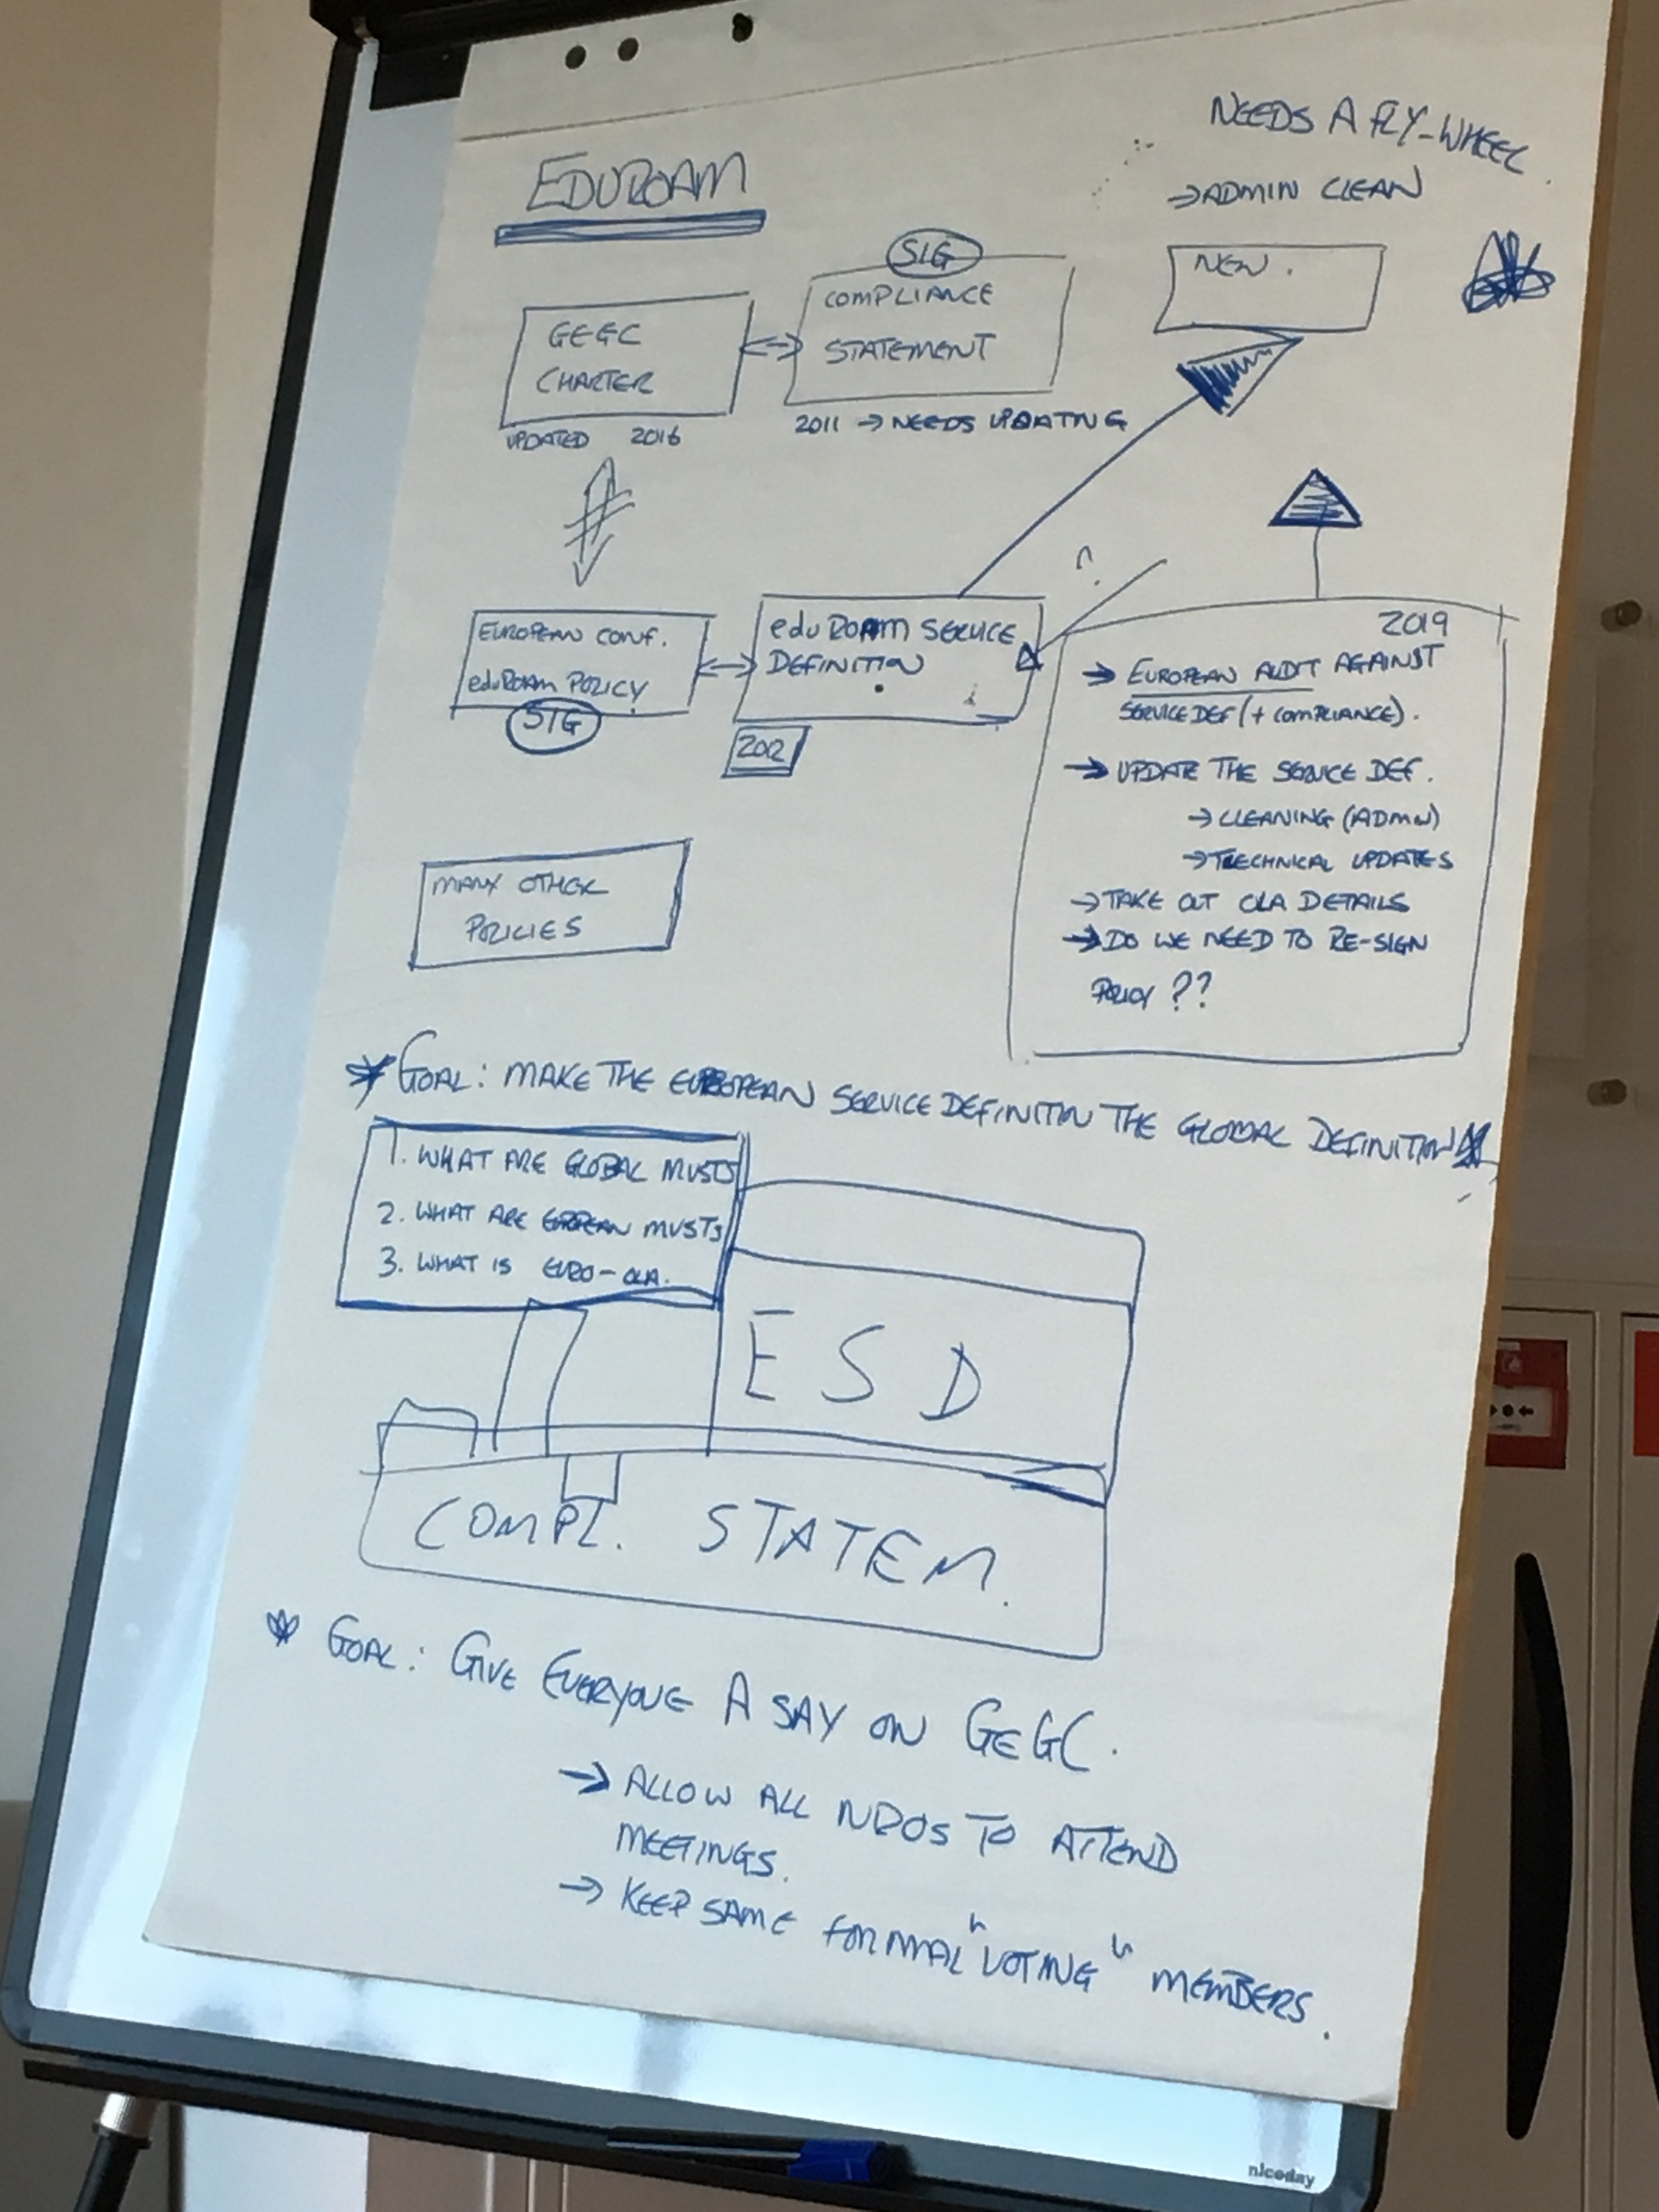 NEEDS A FLY-WHEEL
→ ADMIN CLEAN
EDUROAM
SIG
NEW.
COMPLIANCE
STATEMENT
GEGC
CHARTER
UPDATED 2016
2011 → NEEDS UPDATING
?
EUROPEAN CONF.
eduROAM POLICY
SIG
eduROAM SERVICE
DEFINITION
2012
2019
→ EUROPEAN AUDIT AGAINST
SERVICE DEF (+ COMPLIANCE).
→ UPDATE THE SERVICE DEF.
→ CLEANING (ADMIN)
→ TRECHNICAL UPDATES
→ TAKE OUT OLA DETAILS
→ DO WE NEED TO RE-SIGN
POLICY ??
MANY OTHER
POLICIES
* GOAL: MAKE THE EUROPEAN SERVICE DEFINITION THE GLOBAL DEFINITION *
1. WHAT ARE GLOBAL MUSTS
2. WHAT ARE EUROPEAN MUSTS
3. WHAT IS EURO-OLA.
ESD
COMPL. STATEM.
* GOAL: GIVE EVERYONE A SAY ON GEGC.
→ ALLOW ALL NROS TO ATTEND
MEETINGS.
→ KEEP SAME FORMAL "VOTING" MEMBERS.
niceday